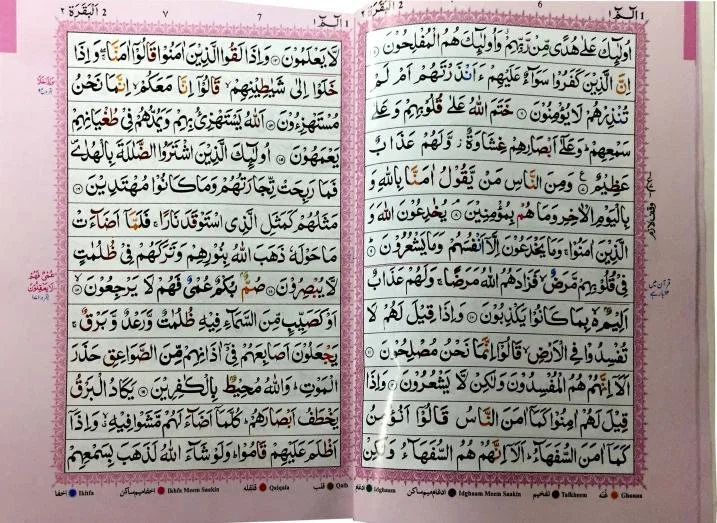 الٓمّٓ ١
6
اَلْبَقَرَة ٢
اُولٰٓئِكَ عَلٰى هُدًى مِّنْ رَّبِّهِمْ ۙ وَاُولٰٓئِكَ هُمُ الْمُفْلِحُوْنَ
اِنَّ الَّذِيْنَ كَفَرُوْا سَوَآءٌ عَلَيْهِمْ ءَاَنْذَرْتَهُمْ اَمْ لَمْ
تُنْذِرْهُمْ لَا يُؤْمِنُوْنَ خَتَمَ اللّٰهُ عَلٰى قُلُوْبِهِمْ وَعَلٰى
سَمْعِهِمْ ؕ وَعَلٰٓى اَبْصَارِهِمْ غِشَاوَةٌ وَّلَهُمْ عَذَابٌ
عَظِيْمٌ وَمِنَ النَّاسِ مَنْ يَّقُوْلُ اٰمَنَّا بِاللّٰهِ وَ
بِالْيَوْمِ الْاٰخِرِ وَمَا هُمْ بِمُؤْمِنِيْنَ يُخٰدِعُوْنَ اللّٰهَ وَ
الَّذِيْنَ اٰمَنُوْا ۚ وَمَا يَخْدَعُوْنَ اِلَّآ اَنْفُسَهُمْ وَمَا يَشْعُرُوْنَ
فِيْ قُلُوْبِهِمْ مَّرَضٌ ۙ فَزَادَهُمُ اللّٰهُ مَرَضًا ۚ وَلَهُمْ عَذَابٌ
اَلِيْمٌ ۢ بِمَا كَانُوْا يَكْذِبُوْنَ وَاِذَا قِيْلَ لَهُمْ لَا
تُفْسِدُوْا فِي الْاَرْضِ ۙ قَالُوْٓا اِنَّمَا نَحْنُ مُصْلِحُوْنَ
اَلَآ اِنَّهُمْ هُمُ الْمُفْسِدُوْنَ وَلٰكِنْ لَّا يَشْعُرُوْنَ وَاِذَا
قِيْلَ لَهُمْ اٰمِنُوْا كَمَآ اٰمَنَ النَّاسُ قَالُوْٓا اَنُؤْمِنُ
كَمَآ اٰمَنَ السُّفَهَآءُ ؕ اَلَآ اِنَّهُمْ هُمُ السُّفَهَآءُ وَلٰكِنْ
غنّه Ghunna
تفخیم Tafkheem
ادغام میم ساکن Idghaam Meem Saakin
ادغام Idghaam
الٓمّٓ ١
7
٧
اَلْبَقَرَة ٢
لَّا يَعْلَمُوْنَ وَاِذَا لَقُوا الَّذِيْنَ اٰمَنُوْا قَالُوْٓا اٰمَنَّا ۖ وَاِذَا
خَلَوْا اِلٰى شَيٰطِيْنِهِمْ ۙ قَالُوْٓا اِنَّا مَعَكُمْ ۙ اِنَّمَا نَحْنُ
مُسْتَهْزِءُوْنَ اَللّٰهُ يَسْتَهْزِئُ بِهِمْ وَيَمُدُّهُمْ فِيْ طُغْيَانِهِمْ
يَعْمَهُوْنَ اُولٰٓئِكَ الَّذِيْنَ اشْتَرَوُا الضَّلٰلَةَ بِالْهُدٰى
فَمَا رَبِحَتْ تِّجَارَتُهُمْ وَمَا كَانُوْا مُهْتَدِيْنَ
مَثَلُهُمْ كَمَثَلِ الَّذِي اسْتَوْقَدَ نَارًا ۚ فَلَمَّآ اَضَآءَتْ
مَا حَوْلَهٗ ذَهَبَ اللّٰهُ بِنُوْرِهِمْ وَتَرَكَهُمْ فِيْ ظُلُمٰتٍ
لَّا يُبْصِرُوْنَ صُمٌّۢ بُكْمٌ عُمْيٌ فَهُمْ لَا يَرْجِعُوْنَ
اَوْ كَصَيِّبٍ مِّنَ السَّمَآءِ فِيْهِ ظُلُمٰتٌ وَّرَعْدٌ وَّبَرْقٌ ۚ
يَجْعَلُوْنَ اَصَابِعَهُمْ فِيْٓ اٰذَانِهِمْ مِّنَ الصَّوَاعِقِ حَذَرَ
الْمَوْتِ ؕ وَاللّٰهُ مُحِيْطٌ ۢ بِالْكٰفِرِيْنَ يَكَادُ الْبَرْقُ
يَخْطَفُ اَبْصَارَهُمْ ؕ كُلَّمَآ اَضَآءَ لَهُمْ مَّشَوْا فِيْهِ ۙ وَاِذَآ
اَظْلَمَ عَلَيْهِمْ قَامُوْا ؕ وَلَوْ شَآءَ اللّٰهُ لَذَهَبَ بِسَمْعِهِمْ
قلب Qalb
قلقله Qalqala
اخفا میم ساکن Ikhfa Meem Saakin
اخفا Ikhfa